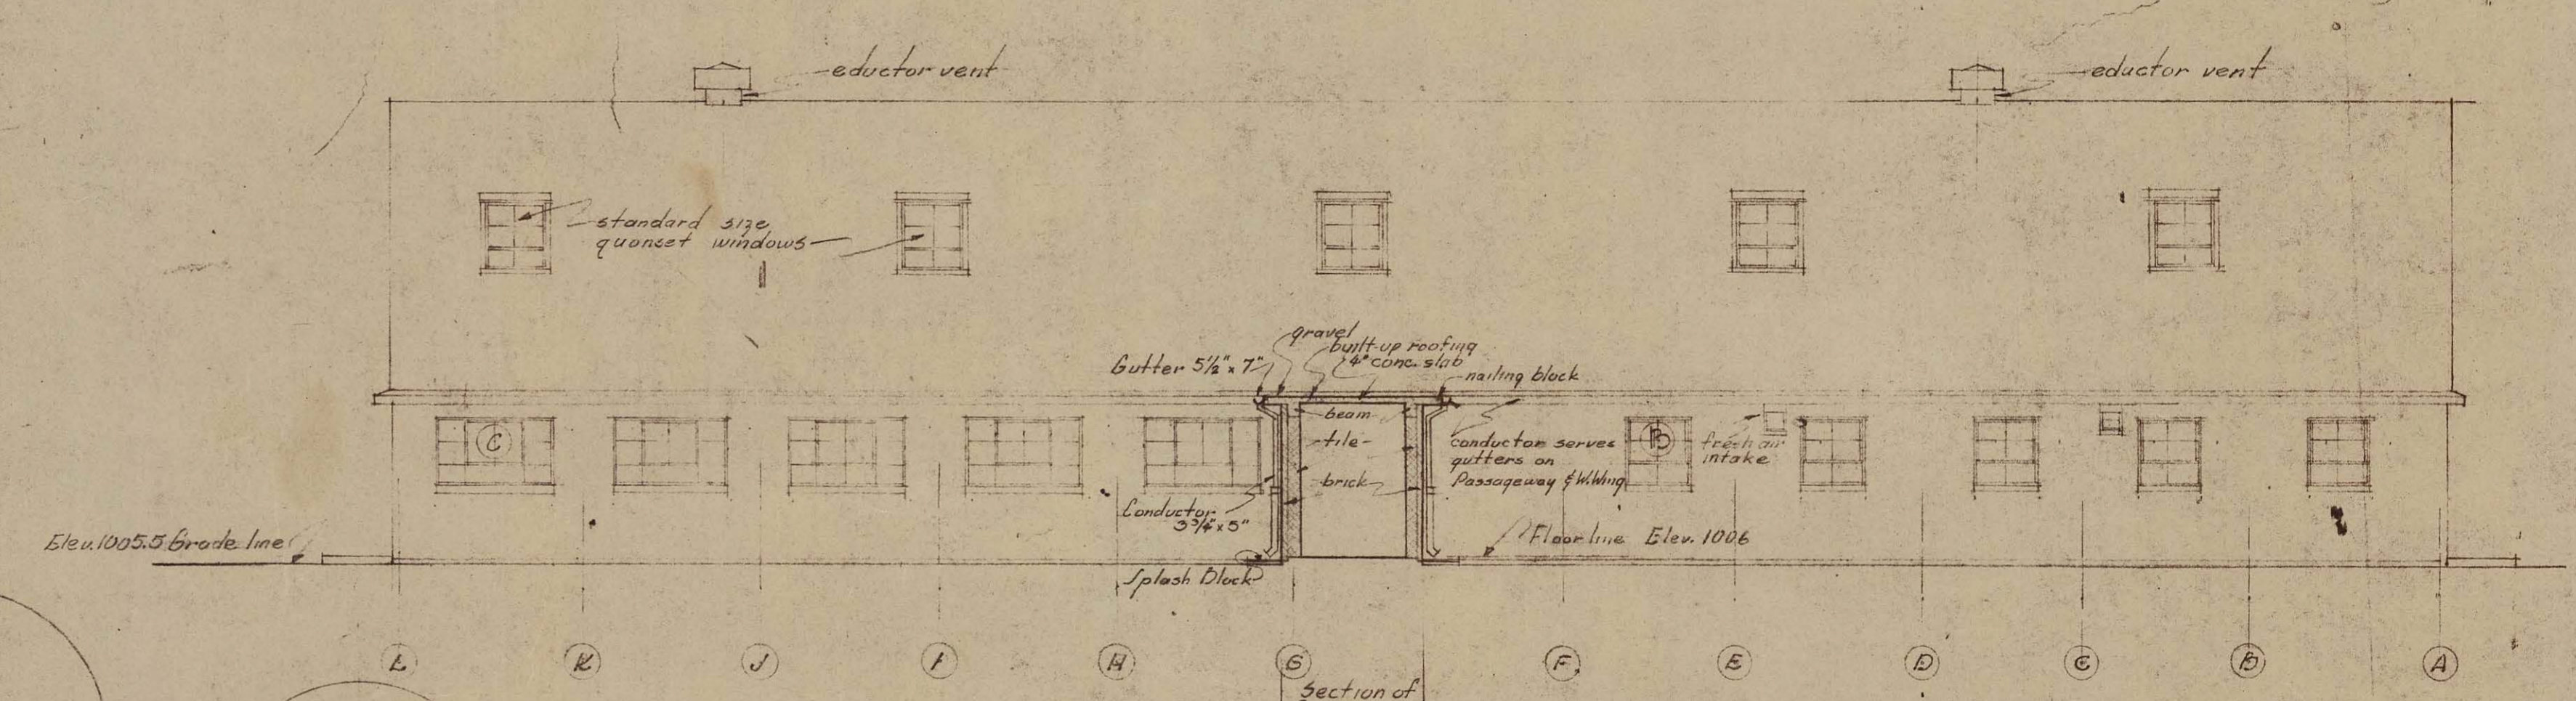 eductor vent
eductor vent
standard size
quonset windows
gravel
built-up roofing
Gutter 5½" x 7"
4" conc. slab
nailing block
beam
tile
brick
C
conductor serves
gutters on
Passageway & W. Wing
B
fresh air
intake
Conductor
3¾" x 5"
Elev. 1005.5 Grade line
Floor line Elev. 1006
Splash Block
L K J I H G F E D C B A
Section of